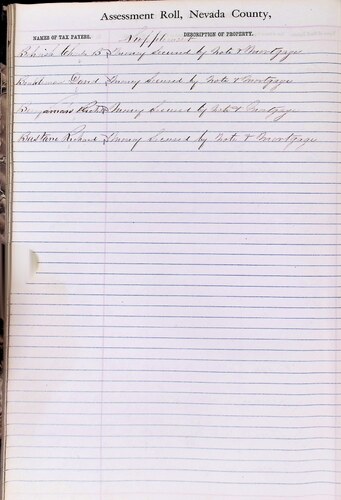 Assessment Roll, Nevada County,
Supplement
NAMES OF TAX PAYERS. DESCRIPTION OF PROPERTY.
B Money Secured by Note & Mortgage
David Money Secured by Note & Mortgage
Benjamin Money Secured by Note & Mortgage
Richard Money Secured by Note & Mortgage